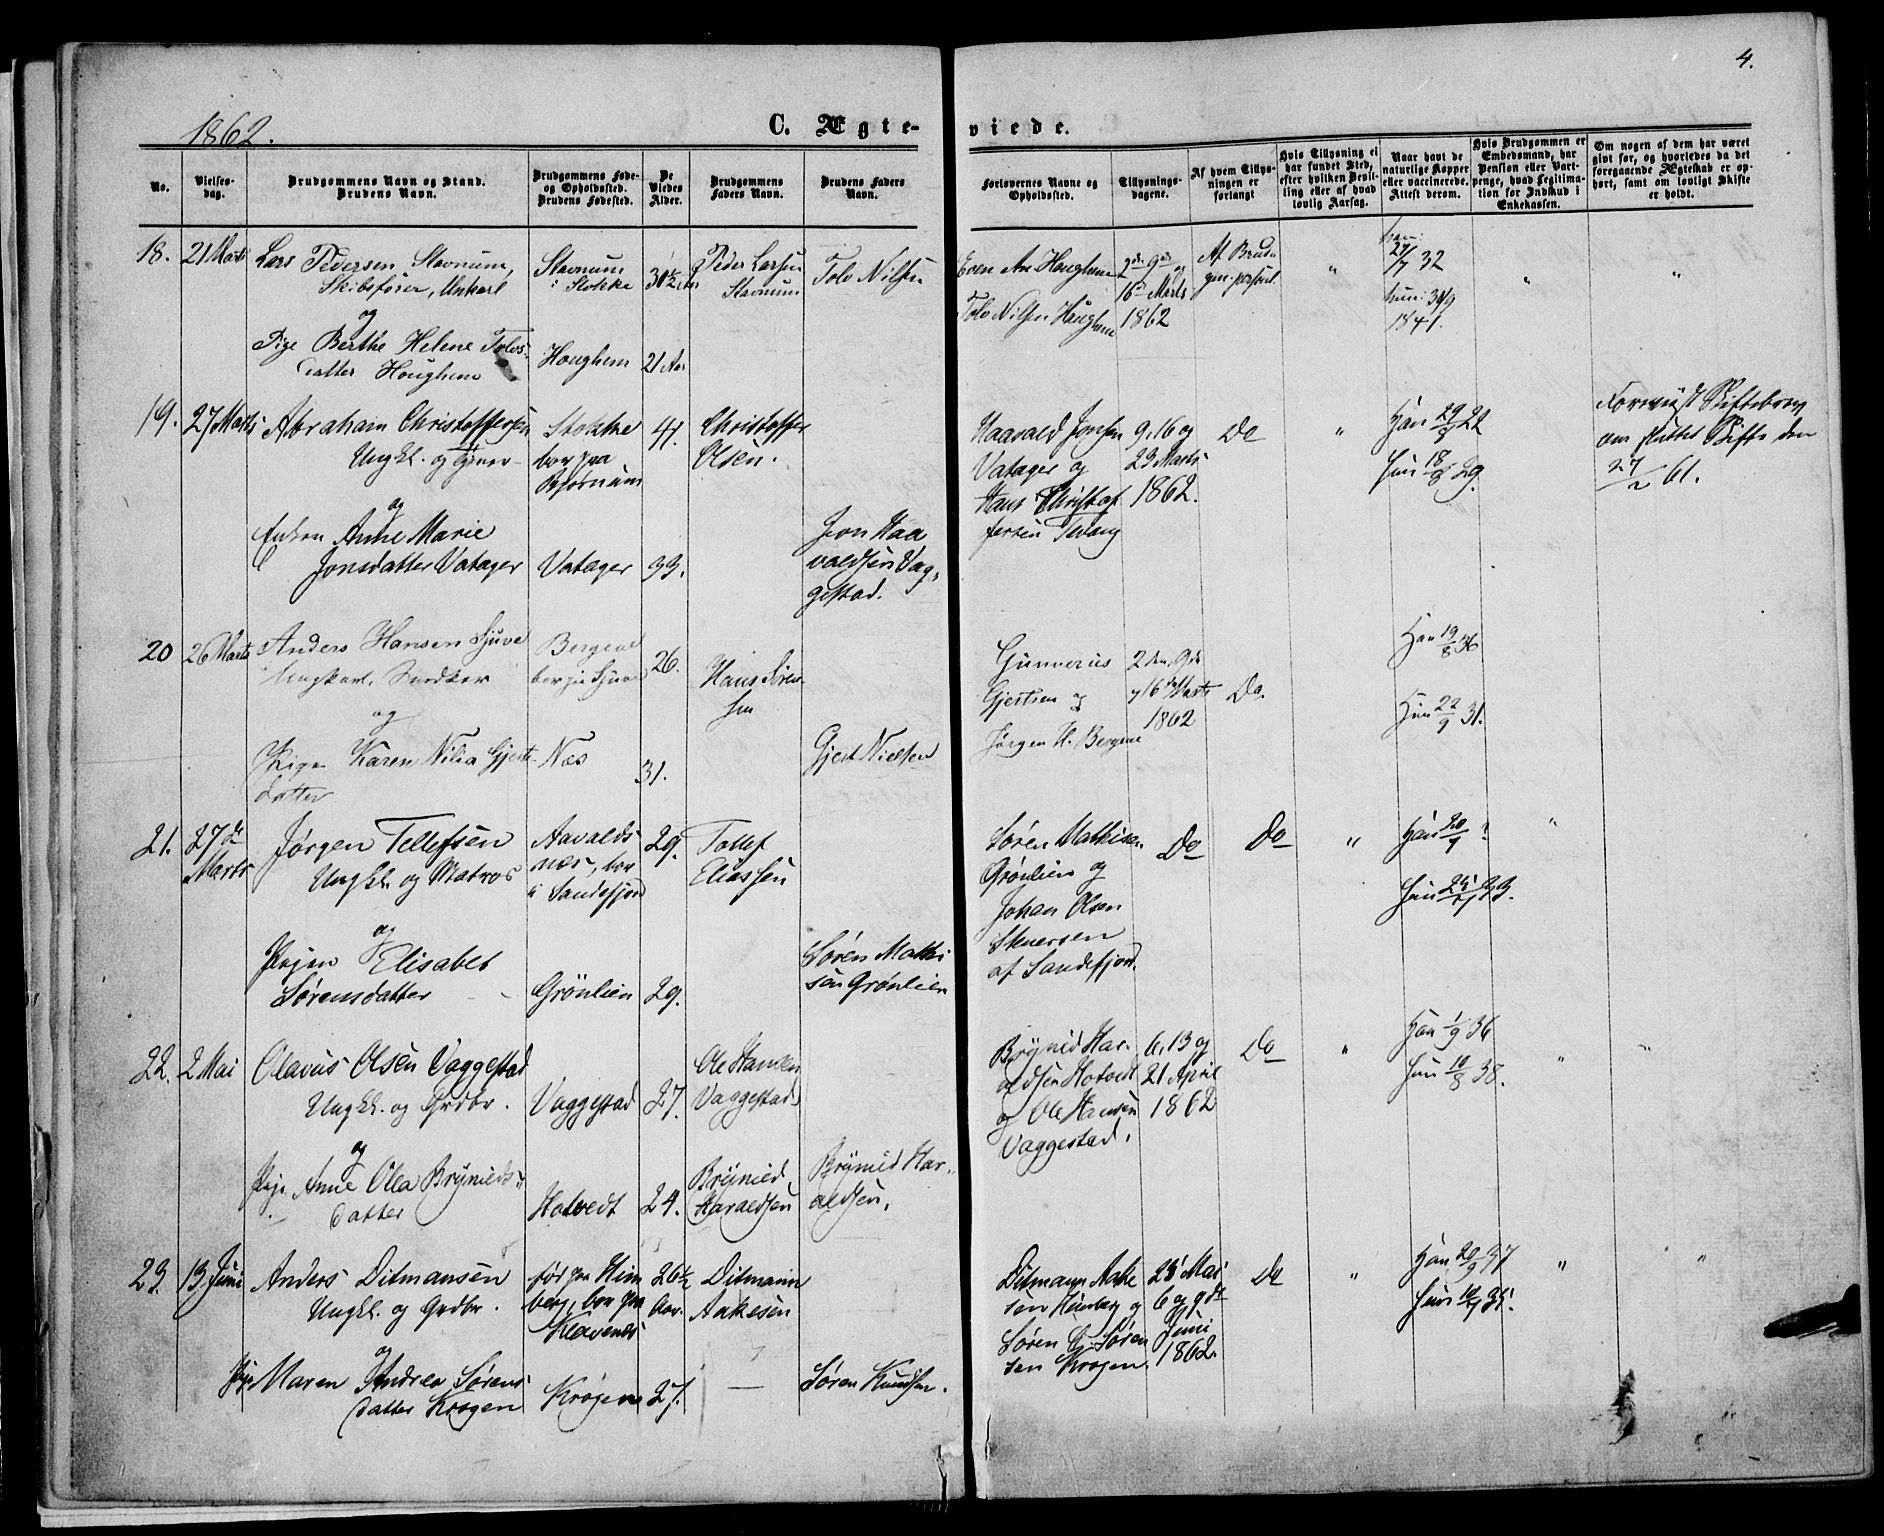 4.
1862.
C. Ægte-
viede.
No.
Vielses-
dag.
Brudgommens Navn og Stand.
Brudens Navn.
Brudgommens Føde-
og Opholdssted.
Brudens Fødested.
De
Viedes
Alder.
Brudgommens
Faders Navn.
Brudens Faders
Navn.
Forlovernes Navne og
Opholdssted.
Tillysnings-
dagene.
Af hvem Tillys-
ningen er
forlangt
Hvis Tillysning ei
har fundet Sted,
efter hvilken Bevil-
ling eller af hvad
lovlig Aarsag.
Naar havt de
naturlige Kopper
eller vaccinerede.
Attest derom.
Hvis Brudgommen er
Embedsmand, har
Pension eller Vart-
penge, hvad Legitima-
tion for Indskud i
Enkekassen.
Om nogen af dem har været
givt før, og hvorledes da det
foregaaende Ægteskab er op-
hørt, samt om lovligt Skifte
er holdt.
18.
21 Marts
Lars Pedersen Stavnum,
Skibsfører, Unkarl
og
Pige Berthe Helene Tolvs-
datter Houghem
Stavnum
i Stokke
Houghem
30½ Aar
21 Aar
Peder Larsen
Stavnum
Tolv Nilsen
Even Are Houghem
Tolv Nilsen Houghem
2den 9de og
16de Marts
1862
Af Brud-
gom. personl.
"
han:
27/7 32
hun: 30/9
1841.
"
"
19.
27 Marts
Abraham Christoffersen
Ungkl. og
og
Enken Anne Marie
Jonsdatter Vatager
Stokke
bor paa
Bjørnum
Vatager
41.
33.
Christoffer
Olsen.
Jon Haa
valdsen Vag-
gestad.
Haavald Jonsen
Vatager og
Hans Christof
fersen
9, 16 og
23 Marts
1862.
Do
"
Han 29/9 22
Hun 18/8 29.
Forevist Skiftebrev
om sluttet Skifte den
27/2 61.
20
26 Marts
Anders Hansen Sjuve
Ungkarl, Snedker
og
Pige Karen Nilia Gjerts-
datter
Bergene
bor paa Sjuve
Næs
26.
31.
Hans Søren-
sen
Gjert Nielsen
Gunnerius
Gjertsen og
Jørgen H. Bergene
2den, 9de
og 16de Marts
1862
Do.
Han 19/8 36
Hun 22/9 31.
21.
27de
Marts
Jørgen Tellefsen
Ungkl. og Matros
og
Pigen Elisabet
Sørensdatter
Aavalds
næs, bor
i Sandefjord
Grönlien
29.
29.
Tollef
Eliassen
Søren Mathi
sen Grönlien
Søren Mathisen
Grönlien og
Johan Olsen
af Sandefjord.
Do
Do
"
Han 20/9 ?
Hun 33.
"
22.
2 Mai
Olavus Olsen Vaggestad
Ungkl. og Grdbr.
og
Pige Anne Olea Brynilds-
datter
Vaggestad
Hotvedt
27.
24.
Ole Hansen
Vaggestad
Brynild
Haraldsen
Brynild Har-
aldsen.
Brynild Har-
aldsen Hotvedt
og Ole Hansen
Vaggestad.
6, 13 og
21 April
1862
Do
"
Han 1/9 36
Hun 10/8 38.
"
"
23.
13 Juni
Anders Ditmansen
Ungkl. og Grdbr.
og
Pige Maren Andrea Sørens-
datter Krogen
fød paa Him
berg, bor paa
Klavenæs
Krogen
26½
Aar.
27.
Ditmann
Aakesen
—
Søren Knudsen.
Ditmann Aake
sen Himberg og
Søren Søren
sen Krogen
25 Mai
6 og 9de
Juni
1862.
Do
"
Han 20/9 37
Hun 35.
"
"